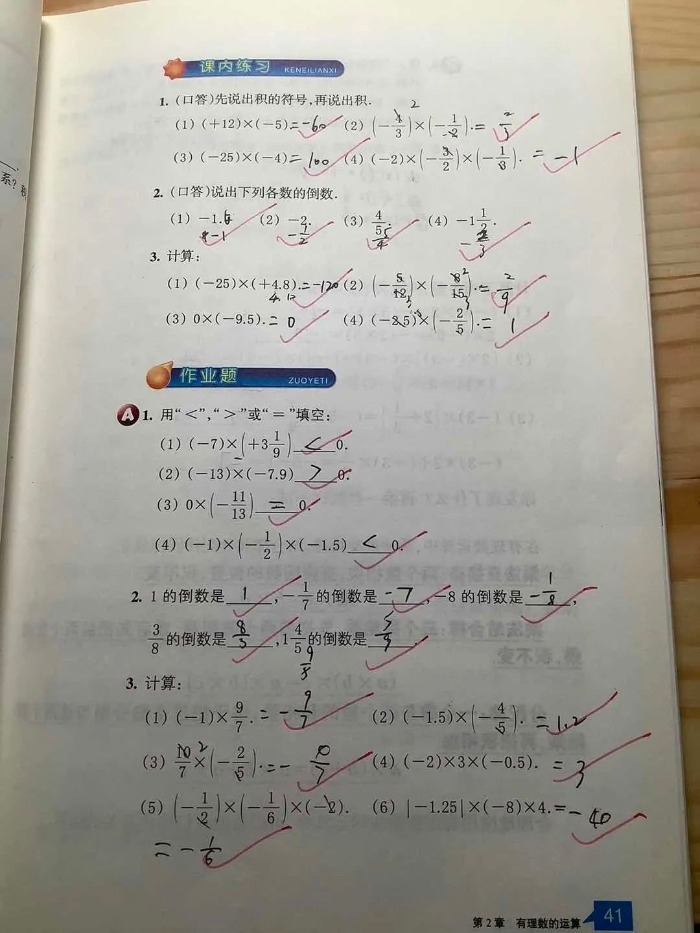 课内练习 KENEILIANXI
1. (口答)先说出积的符号,再说出积.
(1) (+12)×(-5)=-60 (2) (-4/3)×(-1/2).=2/3
(3) (-25)×(-4)=100 (4) (-2)×(-3/2)×(-1/3). =-1
2. (口答)说出下列各数的倒数.
(1) -1. -1 (2) -2. -1/2 (3) 4/5. 5/4 (4) -1 1/2. -2/3
3. 计算:
(1) (-25)×(+4.8).=-120 (2) (-5/12)×(-8/15).=2/9
(3) 0×(-9.5).=0 (4) (-2.5)×(-2/5).=1
作业题 ZUOYETI
A 1. 用“<”,“>”或“=”填空:
(1) (-7)×(+3 1/9) < 0.
(2) (-13)×(-7.9) > 0.
(3) 0×(-11/13) = 0.
(4) (-1)×(-1/2)×(-1.5) < 0.
2. 1的倒数是 1 ,-1/7的倒数是 -7 ,-8的倒数是 -1/8 ,
3/8的倒数是 8/3 ,1 4/5的倒数是 5/9 .
9/5
3. 计算:
(1) (-1)×9/7. =-9/7 (2) (-1.5)×(-4/5). =1.2
(3) 10/7×(-2/5).=- (4) (-2)×3×(-0.5). =3
(5) (-1/2)×(-1/6)×(-2). (6) |-1.25|×(-8)×4.=-40
=-1/6
第2章 有理数的运算 41